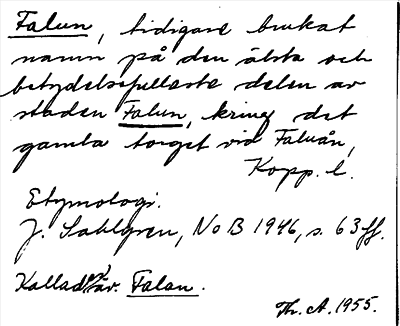 Falun, tidigare brukat
namn på den älsta och
betydelsefullaste delen av
staden Falun, kring det
gamla torget vid Faluån,
Kopp. l.
Etymologi.
J. Sahlgren, NoB 1946, s. 63 ff.
Kallades äv. Falan.
Th. A. 1955.